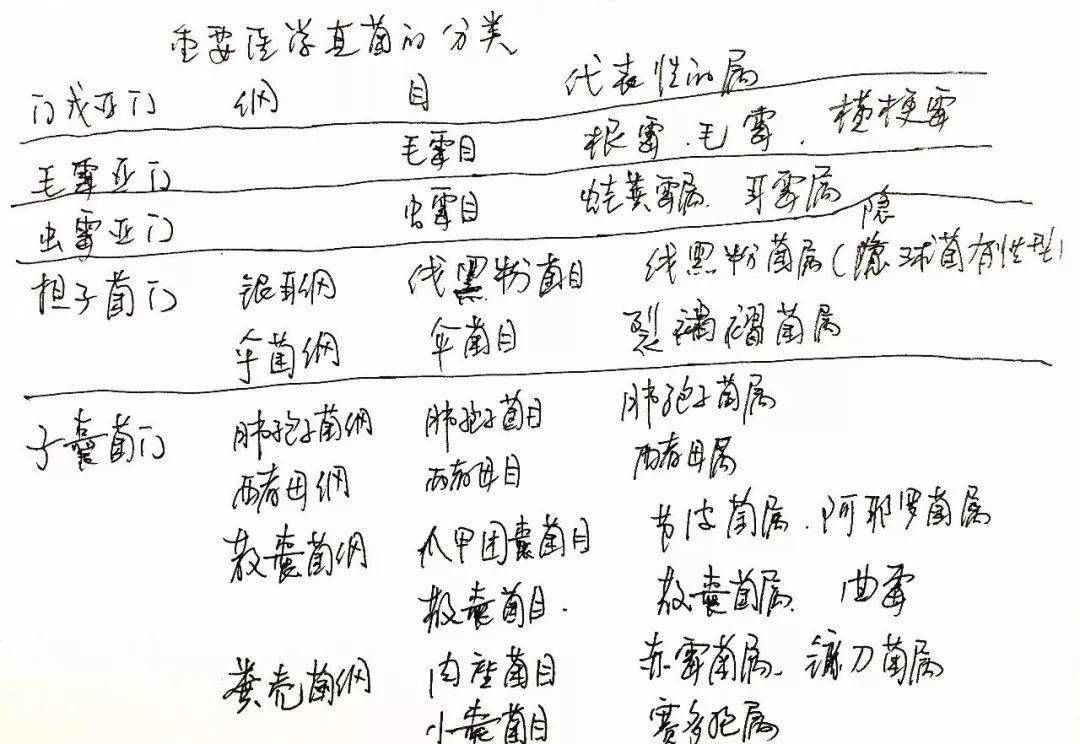 重要医学真菌的分类
门或亚门 纲 目 代表性的属
毛霉亚门 毛霉目 根霉、毛霉、横梗霉
虫霉亚门 虫霉目 蛙粪霉属、耳霉属
担子菌门 银耳纲 线黑粉菌目 线黑粉菌属(隐球菌有性型)
伞菌纲 伞菌目 裂褶菌属
子囊菌门 肺孢子菌纲 肺孢子菌目 肺孢子菌属
酵母纲 酵母目 酵母属
散囊菌纲 爪甲团囊菌目 节皮菌属、阿耶罗菌属
散囊菌目. 散囊菌属、曲霉
粪壳菌纲 肉座菌目 赤霉菌属、镰刀菌属
小囊菌目 赛多孢属